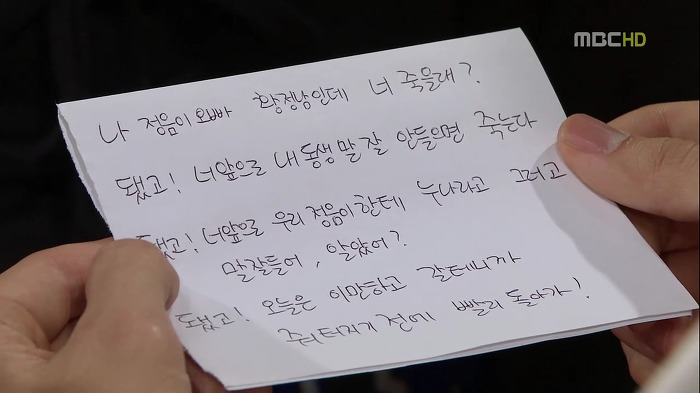 MBC HD
나 정음이 오빠 황정남인데 너 죽을래?
됐고! 너 앞으로 내 동생 말 잘 안들으면 죽는다
됐고! 너 앞으로 우리 정음이한테 누나라고 그러고
말 잘들어, 알았어?
됐고! 오늘은 이만하고 갈테니까
줘터지기 전에 빨리 돌아가!